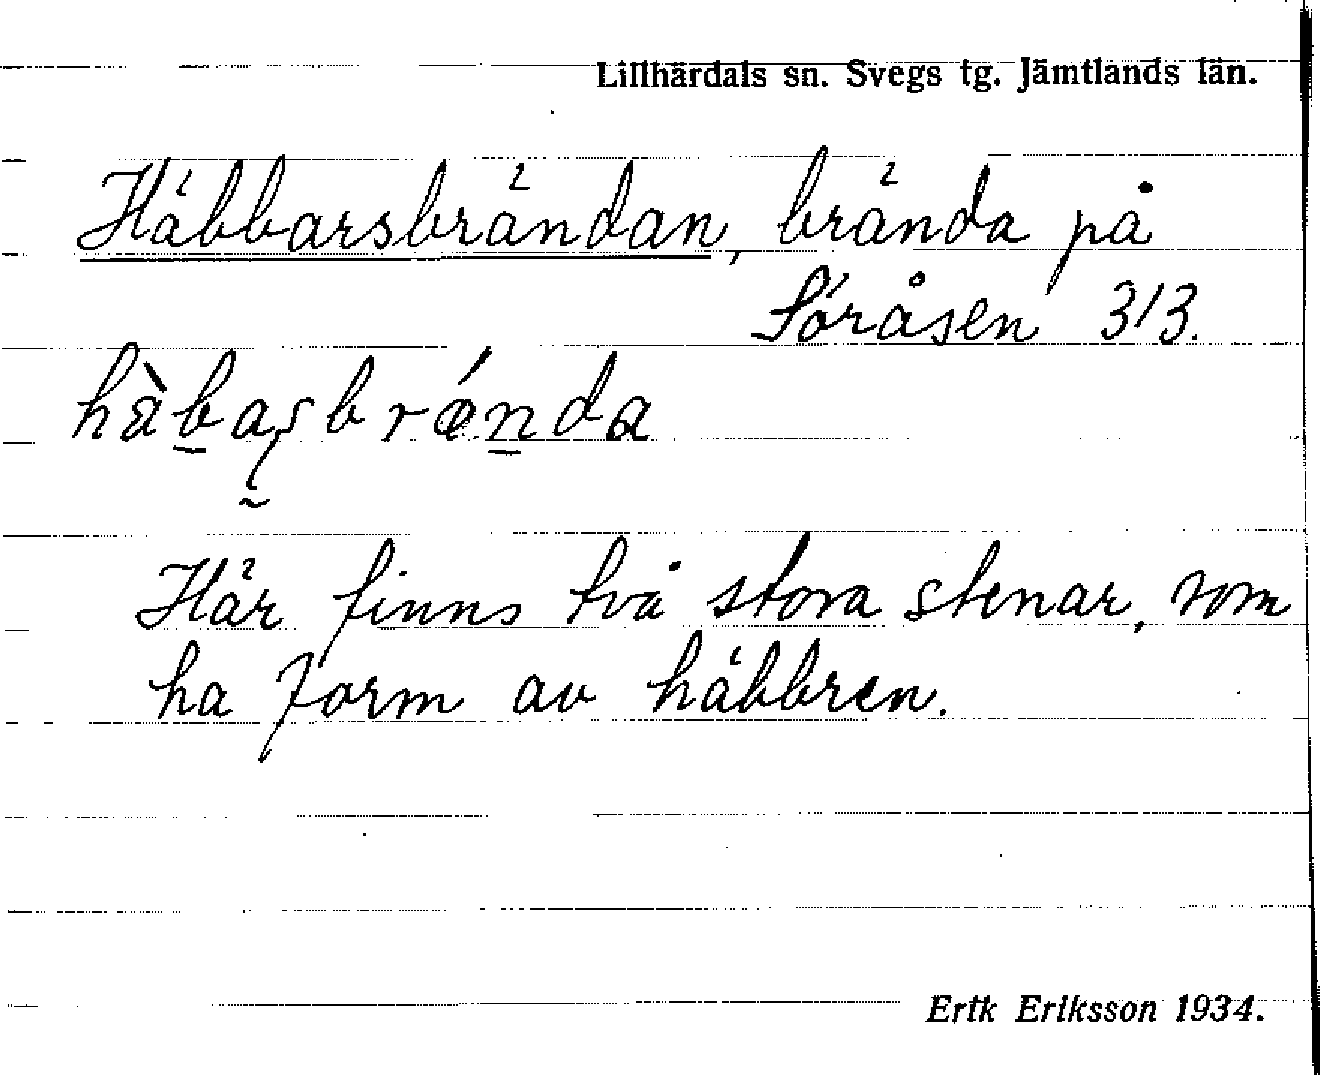 Lillhärdals sn. Svegs tg. Jämtlands län.
Häbbarsbrändan, brända på
Söråsen 313.
Här finns två stora stenar, som
ha form av häbbren.
Erik Eriksson 1934.